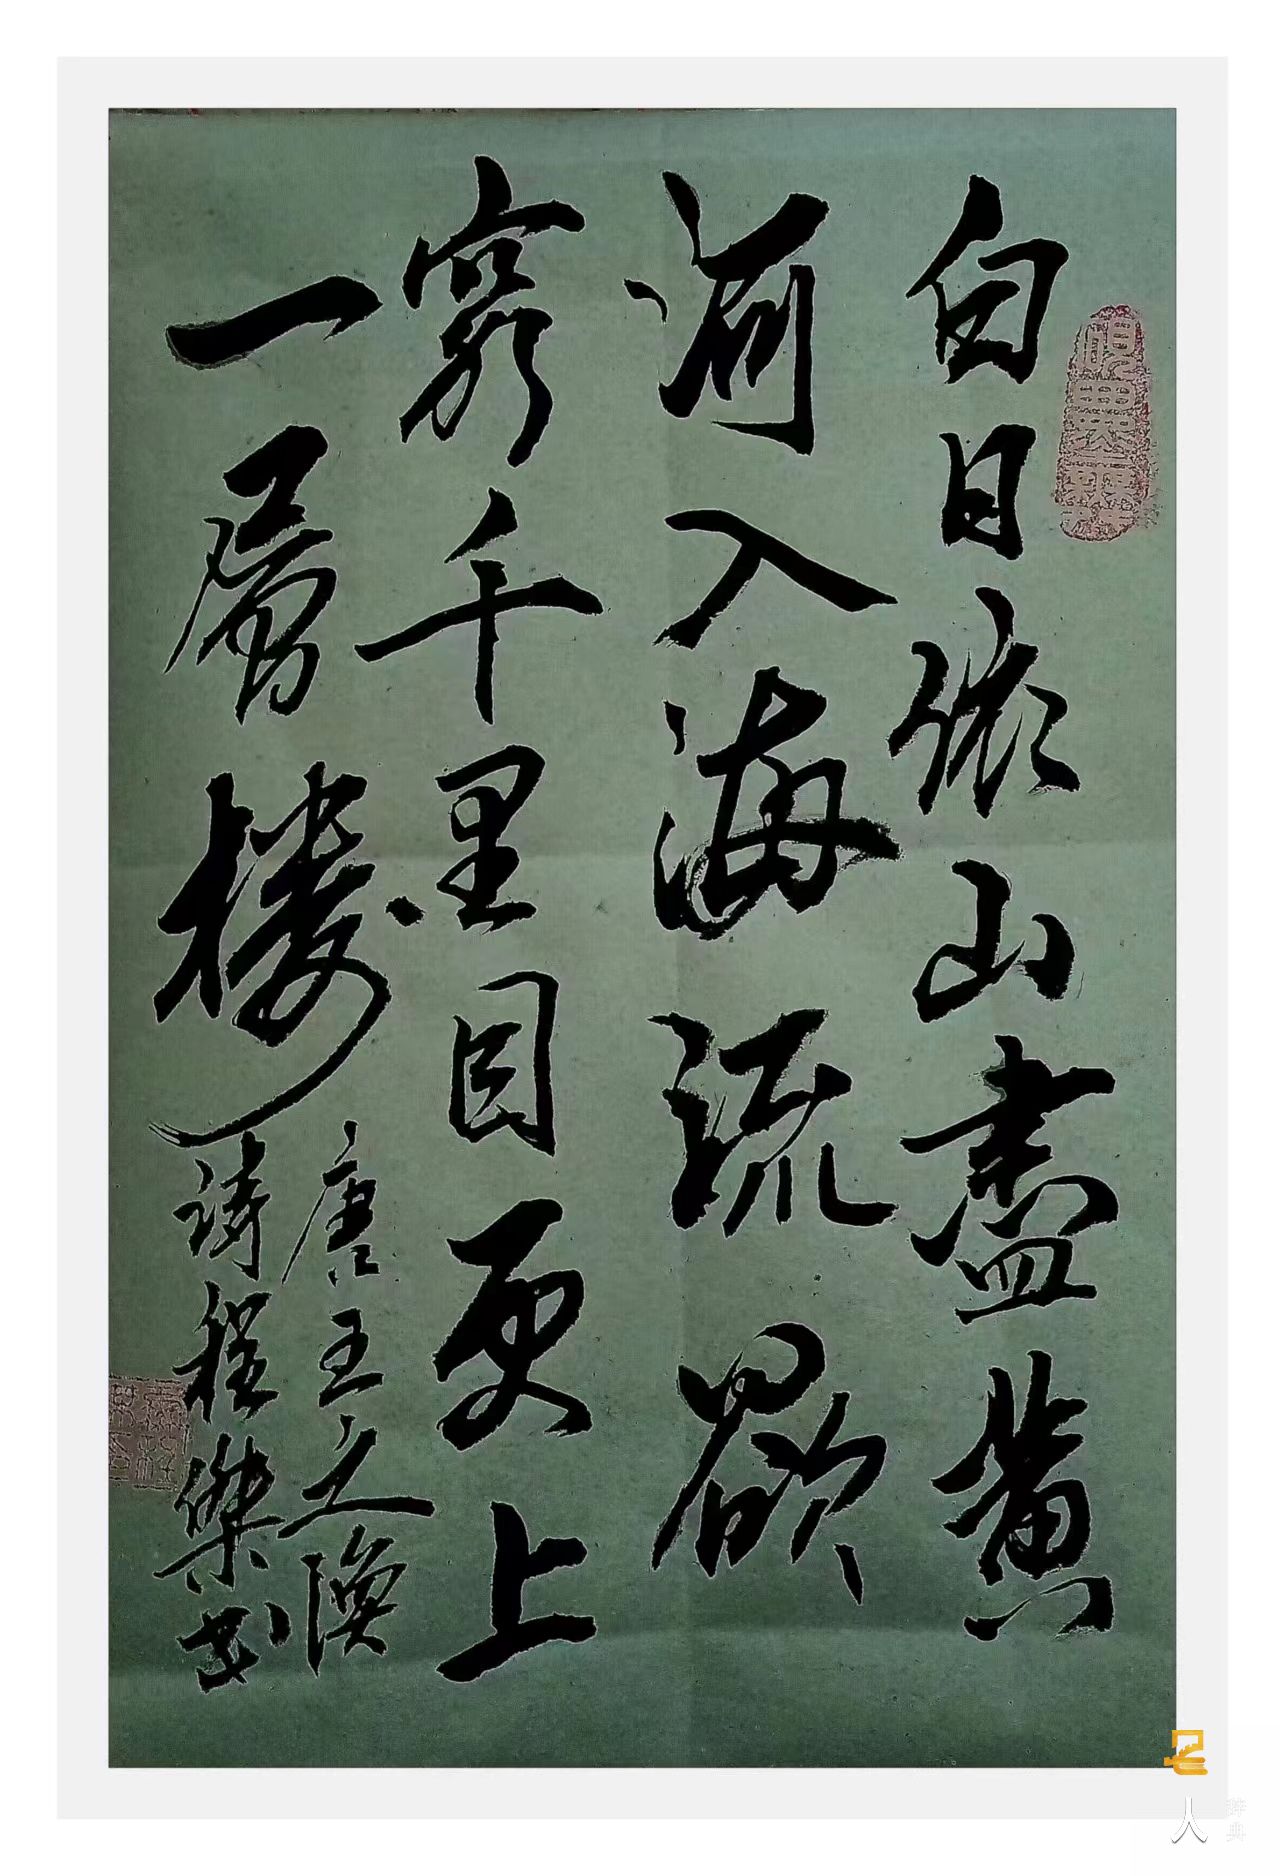 白日依山盡黃
河入海流欲
窮千里目更上
一層樓
唐王之渙
詩程傑书
名人
辞典